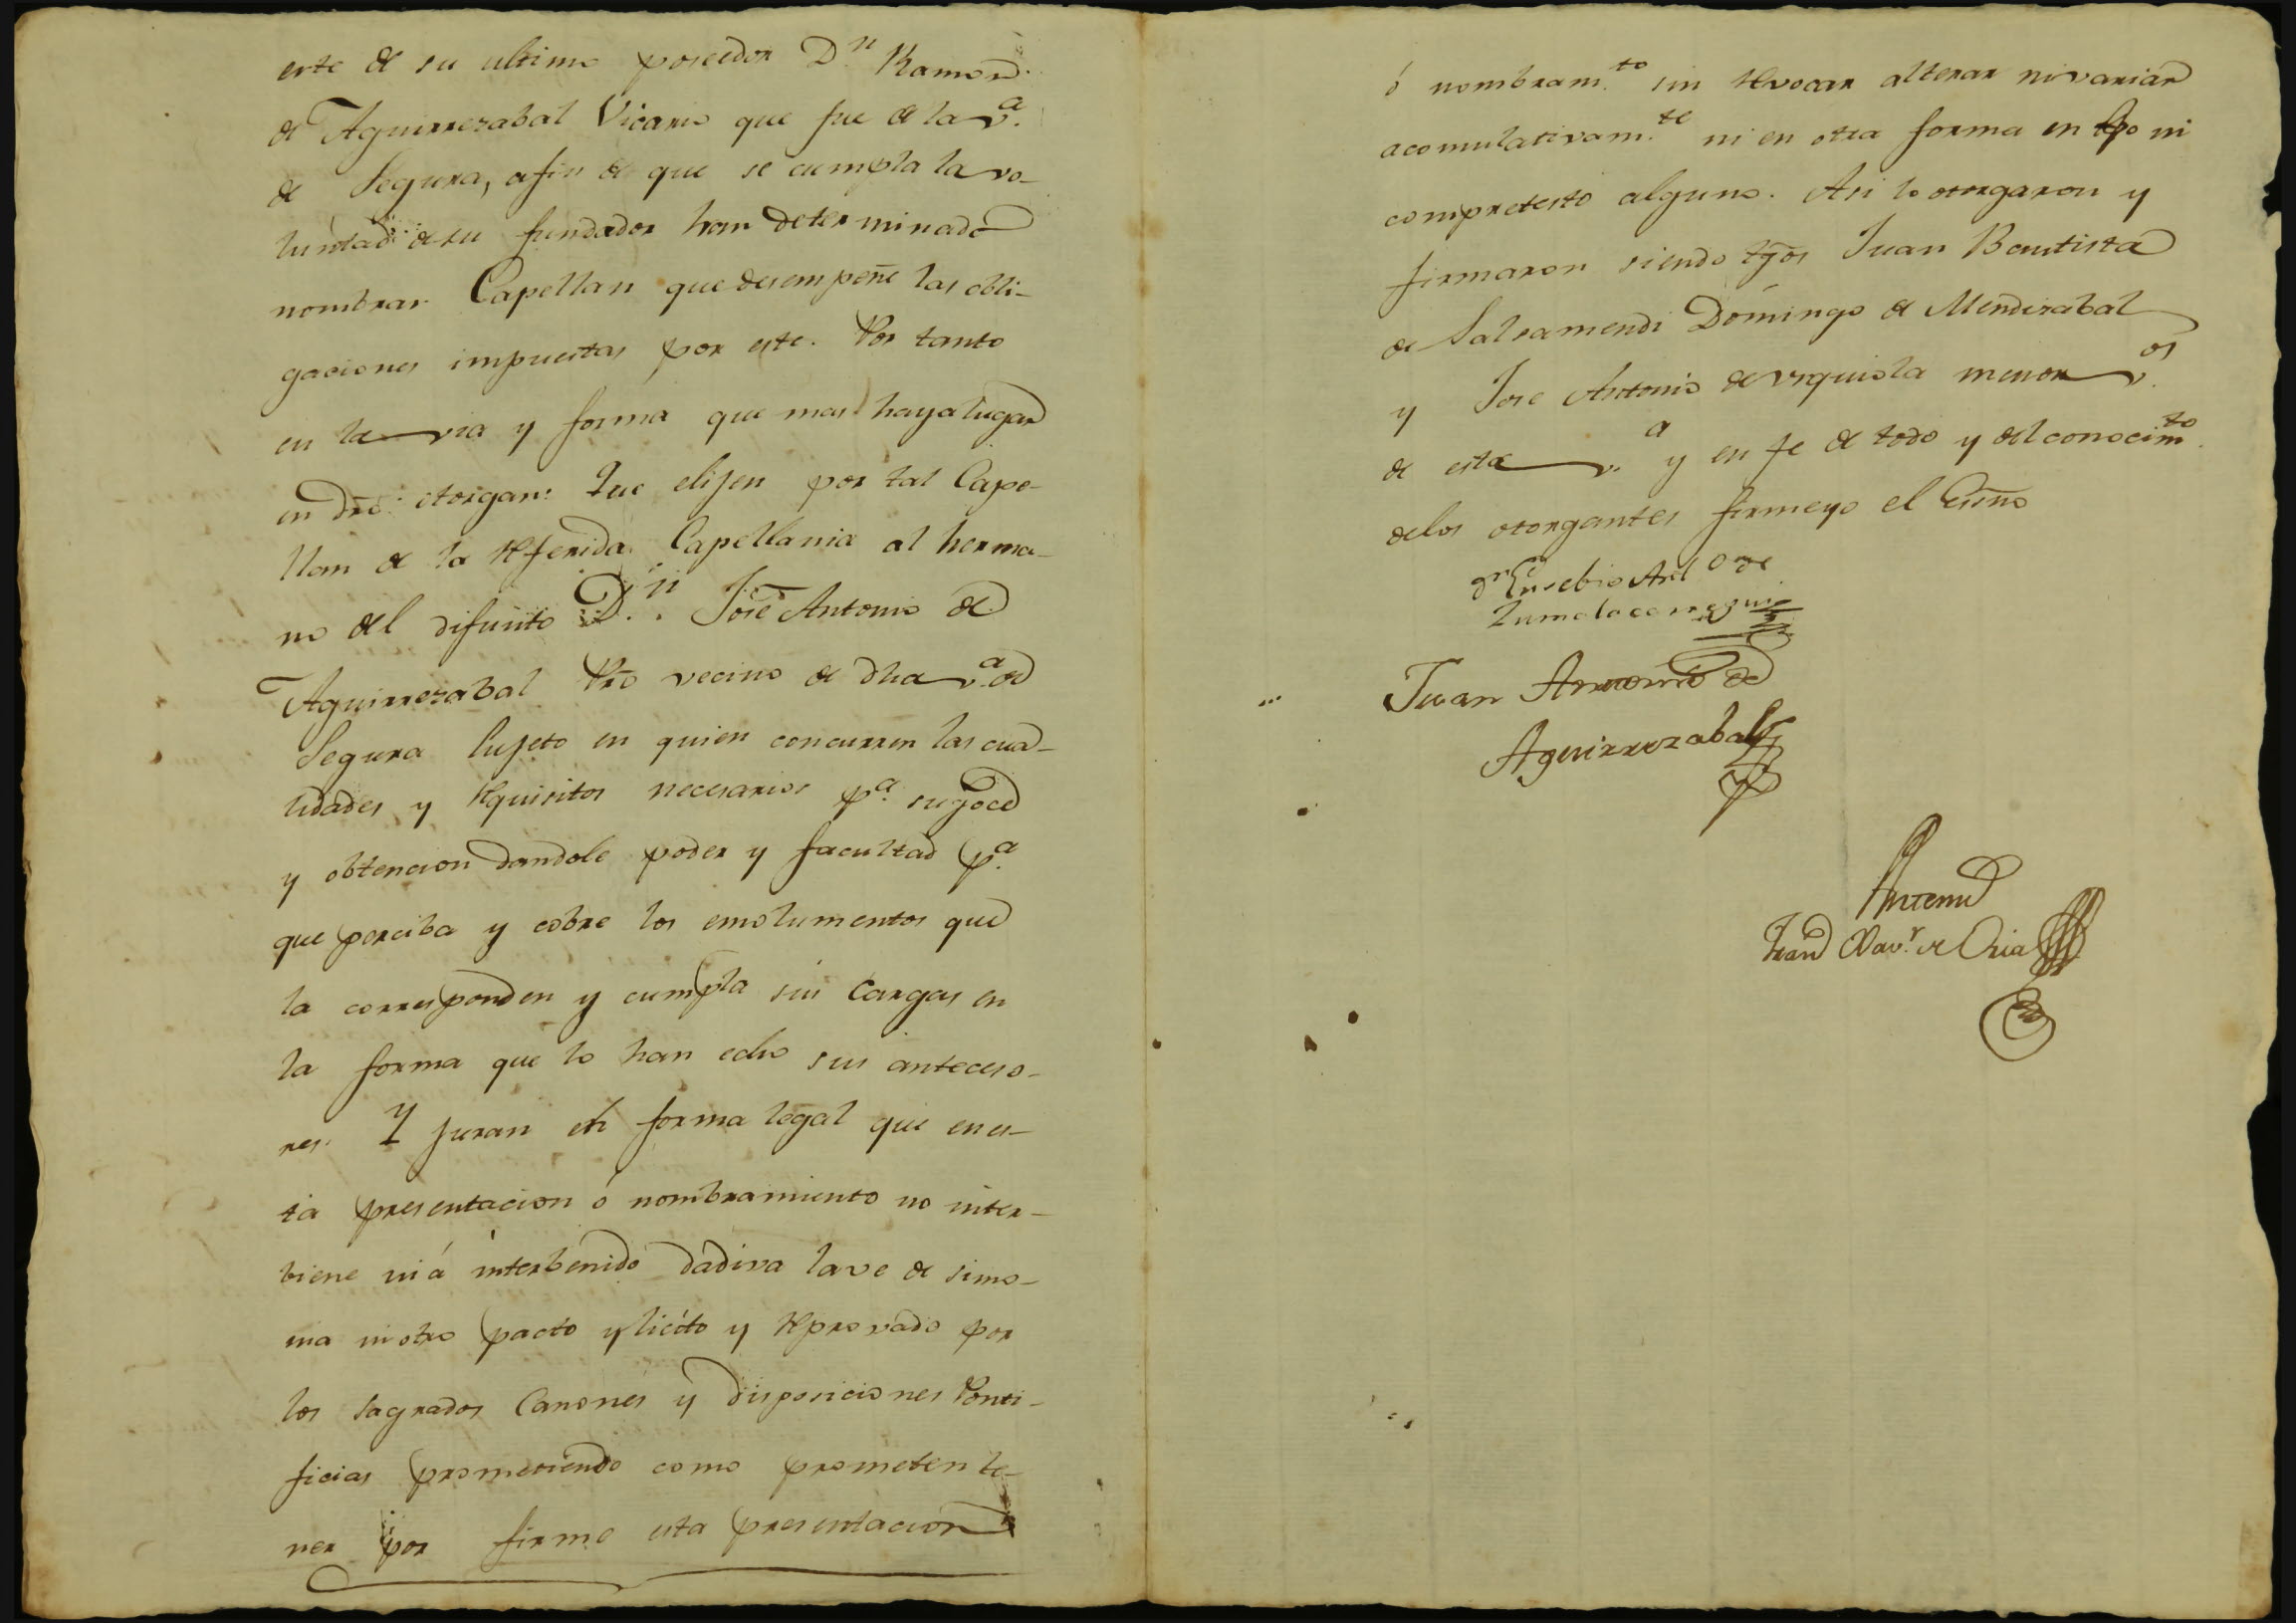 erte de su ultimo poseedor D.n Ramon
de Aguirrezabal Vicario que fue de la v.a
de Segura, afin de que se cumpla la vo-
luntad de su fundador han determinado
nombrar Capellan que desempeñe las obli-
gaciones impuestas por este. Por tanto
en la via y forma que mas haya lugar
en dro. otorgan: Que elijen por tal Cape-
llan de la Referida Capellania al herma-
no del difunto D.n Jose Antonio de
Aguirrezabal Pro vecino de dha v.a de
Segura Sujeto en quien concurren las cua-
lidades y Requisitos necesarios p.a su goce
y obtencion dandole poder y facultad p.a
que perciba y cobre los emolumentos que
la corresponden y cumpla sus Cargas en
la forma que lo han echo sus anteceso-
res. Y juran en forma legal que en es-
ta presentacion ó nombramiento no inter-
biene ni á interbenido dadiva lave de simo-
nia ni otro pacto ylicito y Reprovado por
los Sagrados Canones y disposiciones Ponti-
ficias prometiendo como prometen te-
ner por firme esta presentacion
ó nombram.to sin Revocar alterar ni variar
acomulativam.te ni en otra forma en tpo ni
compretesto alguno. Asi lo otorgaron y
firmaron siendo tgos Juan Bautista
de Salsamendi Domingo de Mendizabal
y Jose Antonio de Urquiola menor v.os
de esta v.a y en fe de todo y del conocim.to
de los otorgantes firme yo el Esno
D.n Eusebio Ant.o de
Zumalacarregui
Juan Antonio de
Aguirrezabal
Antemi
Fran Xav.r de Oria